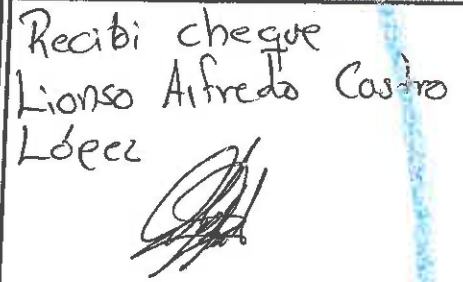 Recibi cheque
Lionso Alfredo Castro
López